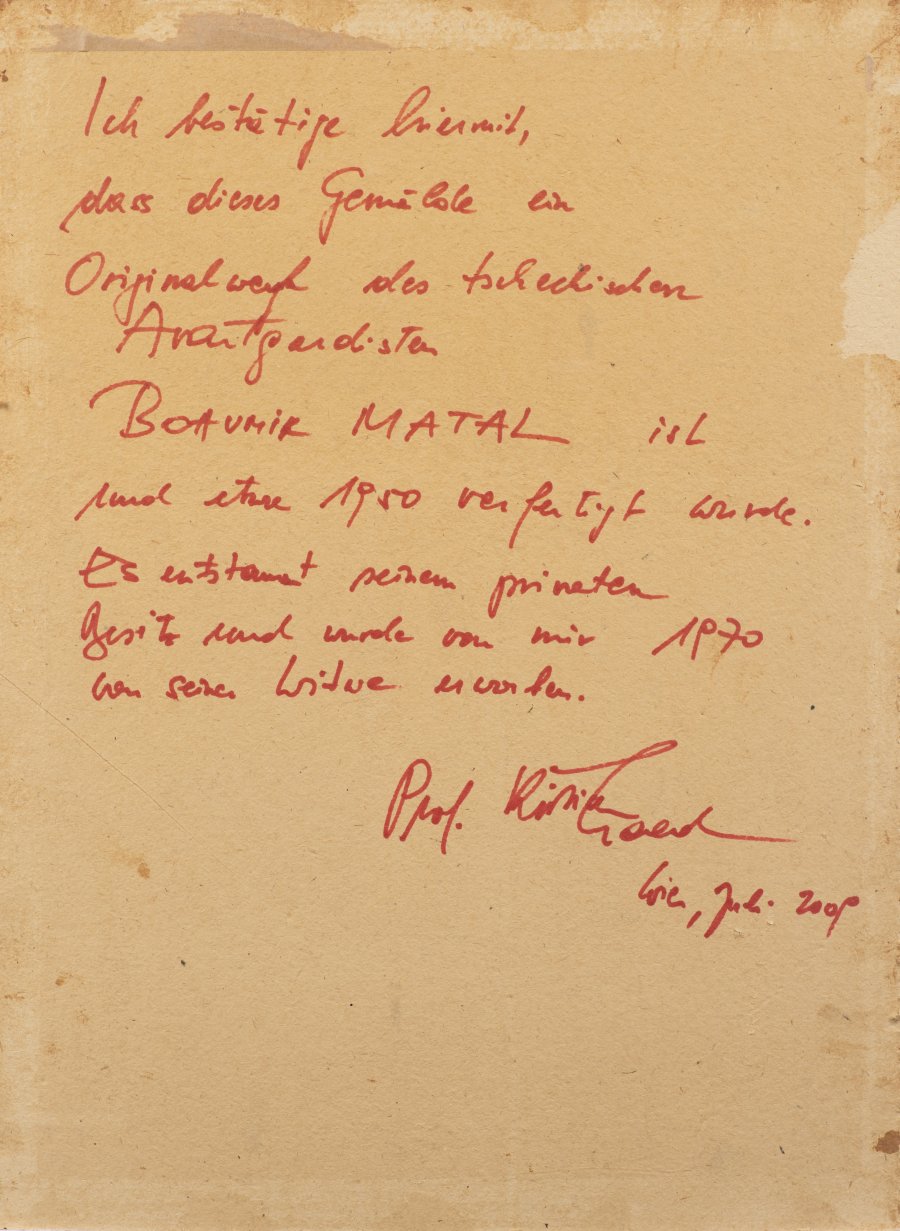 Ich bestätige hiermit,
dass dieses Gemälde ein
Originalwerk des tschechischen
Avantgardisten
BOHUMIR MATAL ist
und etwa 1950 verfertigt wurde.
Es entstammt seinem privaten
Besitz und wurde von mir 1970
von seiner Witwe erworben.
Prof.
Wien, Juli 2009